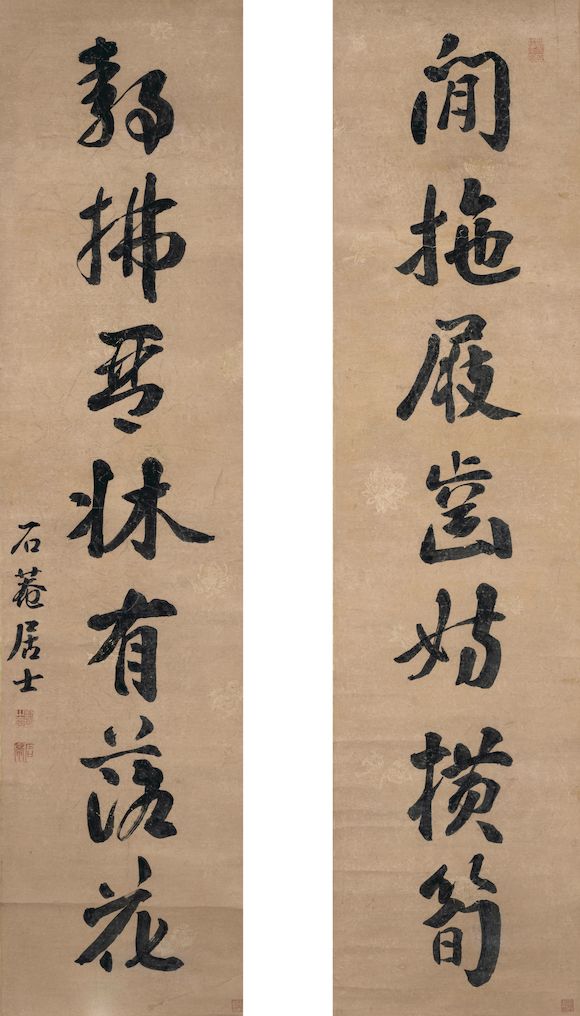 閒拖屐齒妨橫筍
靜拂琴牀有落花
石菴居士